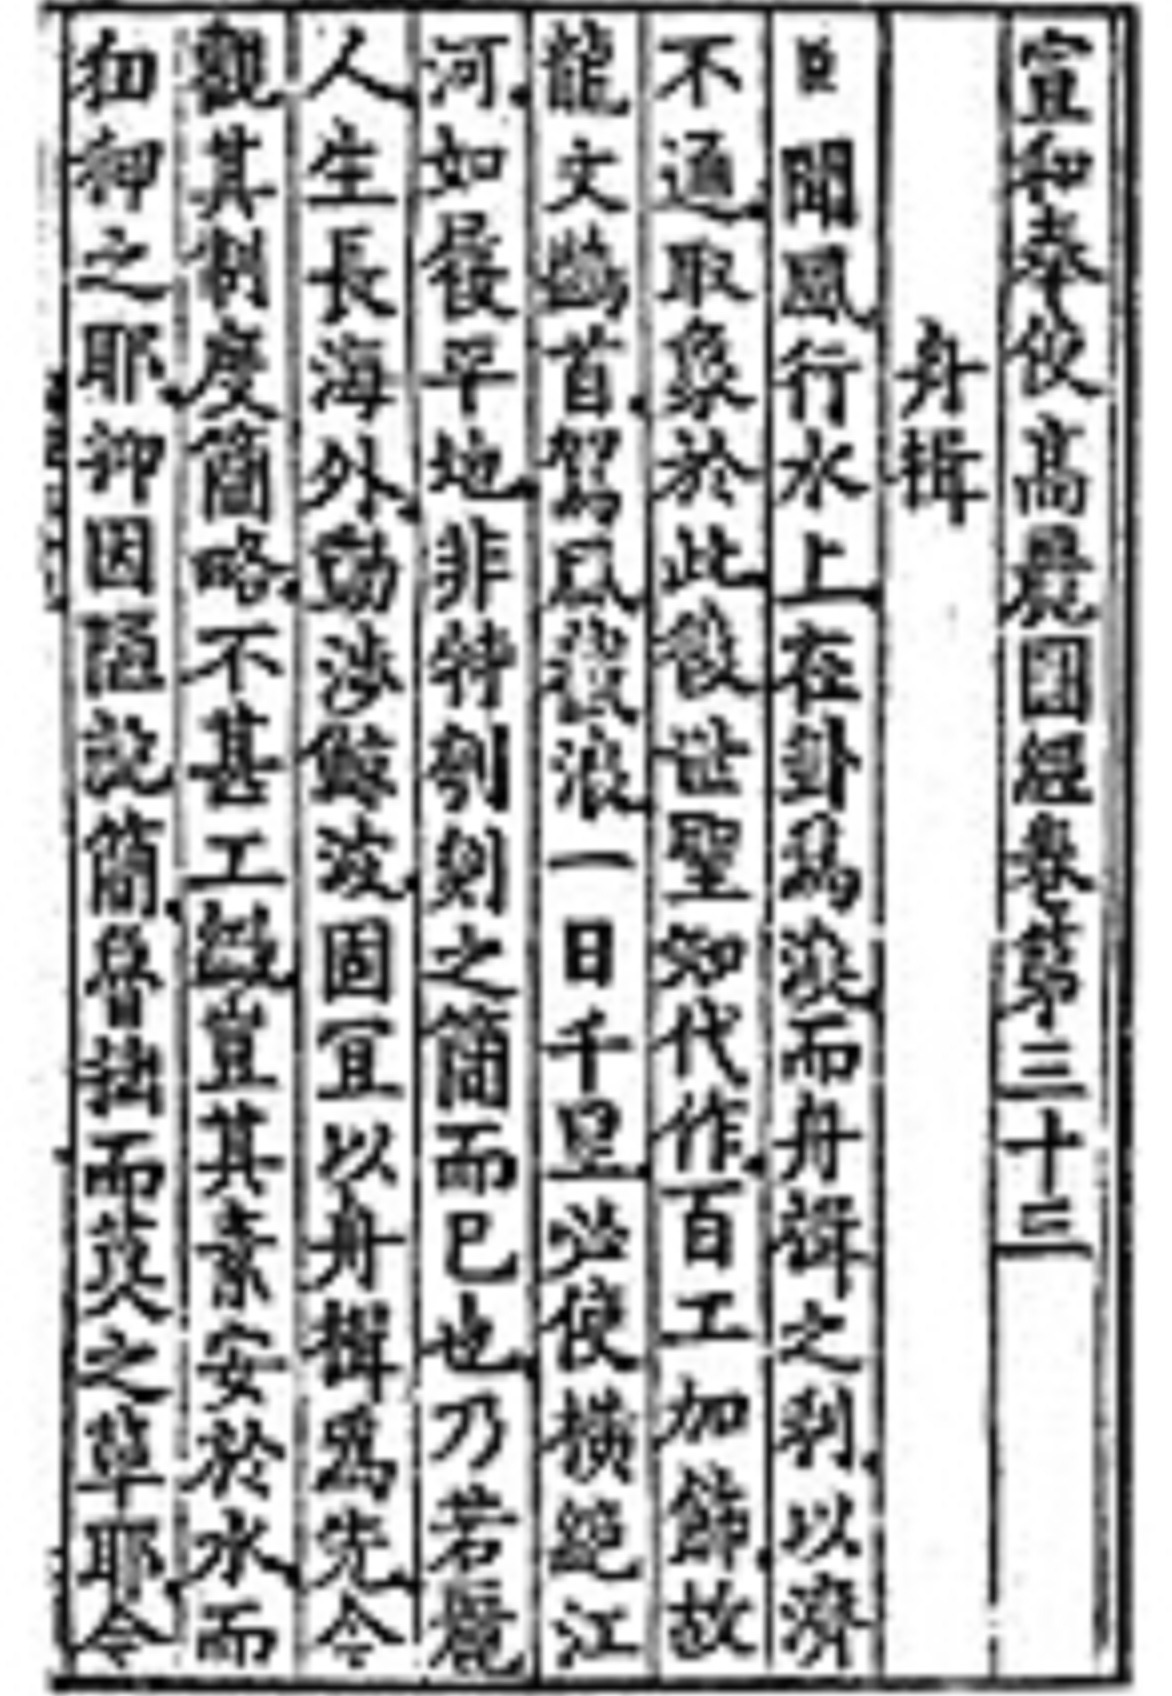 宣和奉使高麗圖經卷第三十三
舟楫
臣聞風行水上在卦爲渙而舟楫之利以濟
不通取象於此後世聖知代作百工加飾故
龍文鷁首駕風截浪一日千里必使橫絕江
河如履平地非特刳剡之簡而已也乃若麗
人生長海外動涉鯨波固宜以舟楫爲先今
觀其制度簡略不甚工緻豈其素安於水而
狃狎之耶抑因陋就簡魯拙而莫之革耶今